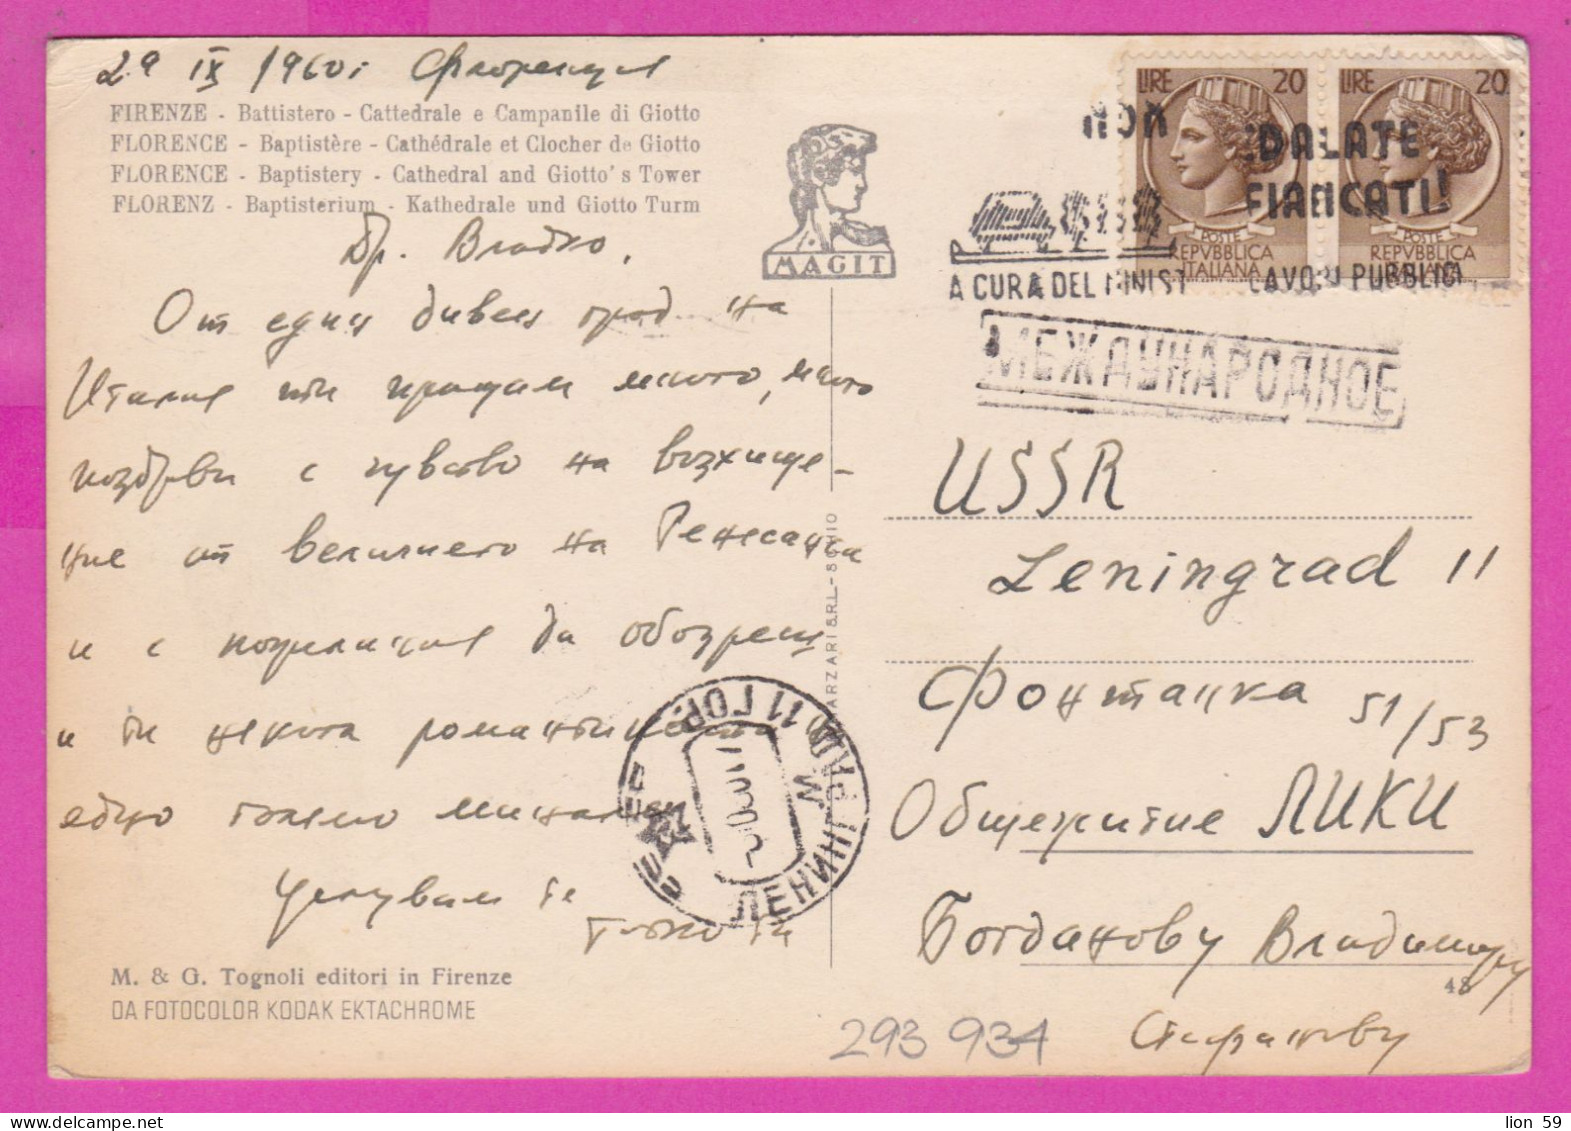 29 IX 1960г Флоренция
FIRENZE - Battistero - Cattedrale e Campanile di Giotto
FLORENCE - Baptistère - Cathédrale et Clocher de Giotto
FLORENCE - Baptistery - Cathedral and Giotto's Tower
FLORENZ - Baptisterium - Kathedrale und Giotto Turm
MAGIT
Др. Владко,
От един дивен град на
Италия ти пращам много, много
поздрави с чувство на възхище-
ние от величието на Ренесанса
и с пожелания да обозреш
и ти некога романтиката
едно голямо минало
Целувам те
M. & G. Tognoli editori in Firenze
DA FOTOCOLOR KODAK EKTACHROME
ARZARI S.R.L. - SCHIO
ЛЕНИНГРАД 11 ГОР.
LIRE 20
POSTE
REPVBBLICA
ITALIANA
LIRE 20
POSTE
REPVBBLICA
ITALIANA
NON
DALATE
FIANCATI!
A CURA DEL MINIST LAVORI PUBBLICI
МЕЖДУНАРОДНОЕ
USSR
Leningrad 11
Фонтанка 51/53
Общежитие ЛИКИ
Богданову Владимиру
Стефанову
48
293 934
lion 59